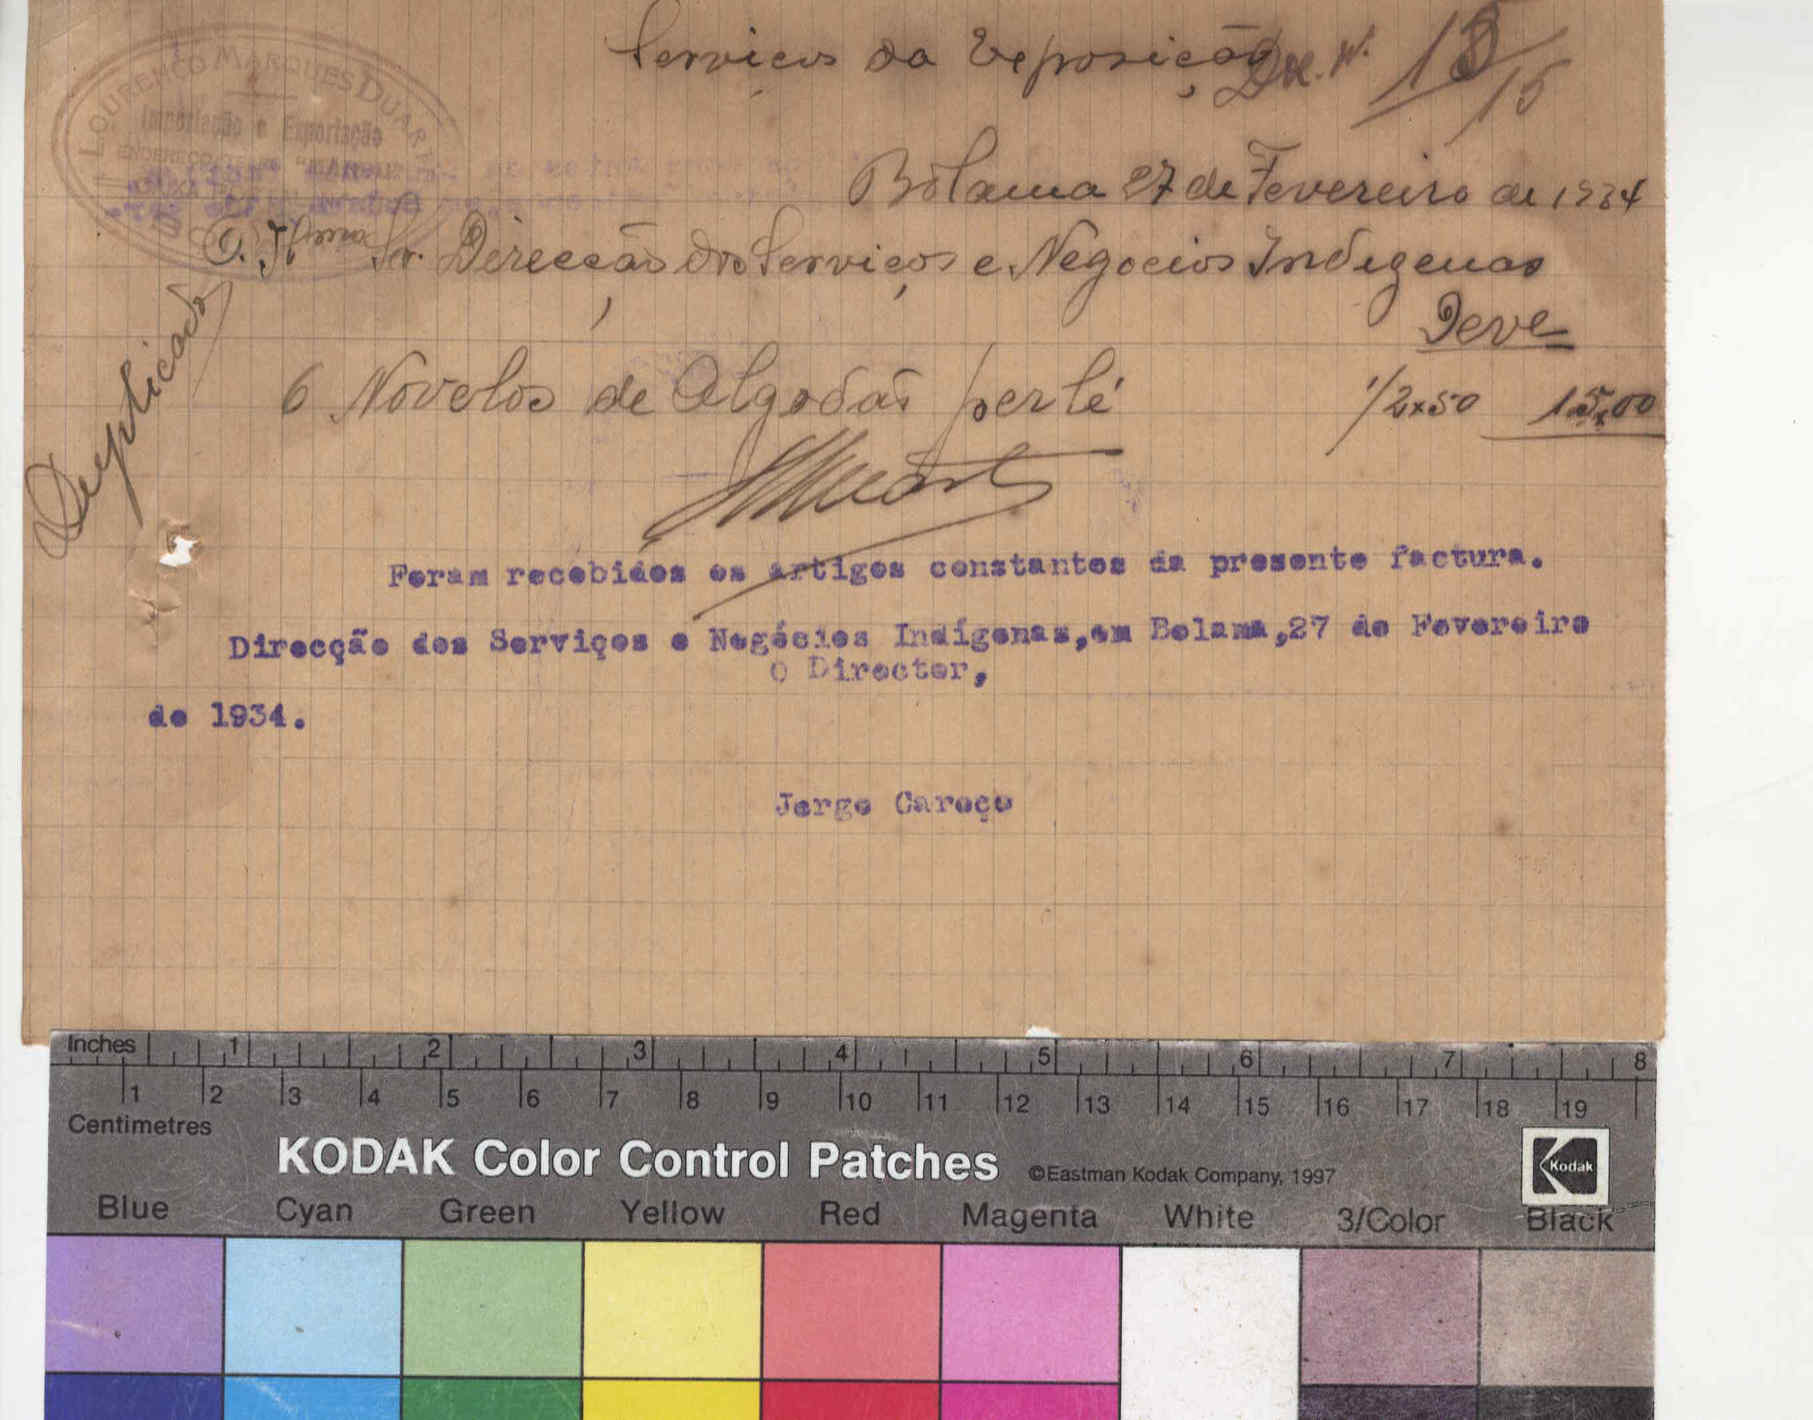 Serviços da Exposição Doc. N. 13/15
LOURENÇO MARQUES DUARTE
Importação e Exportação
ENDEREÇO
Bolama 27 de Fevereiro de 1934
O. Ilmo Sr. Direcção dos Serviços e Negocios Indigenas
Deve
Duplicado
6 Novelos de Algodão perlé 1/2x50 15,00
Foram recebidos os artigos constantes da presente factura.
Direcção dos Serviços e Negócios Indígenas,em Bolama,27 de Fevereiro
O Director,
de 1934.
Jorge Caroço
Inches 1 2 3 4 5 6 7 8
1 2 3 4 5 6 7 8 9 10 11 12 13 14 15 16 17 18 19
Centimetres
KODAK Color Control Patches ©Eastman Kodak Company, 1997 Kodak
Blue Cyan Green Yellow Red Magenta White 3/Color Black